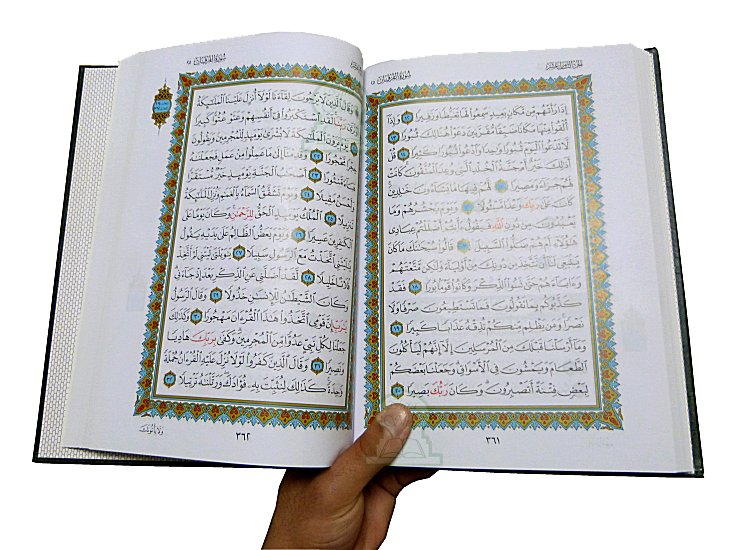 سُورَةُ الفُرْقَانِ ٢٥
إِذَا رَأَتْهُم مِّن مَّكَانٍ بَعِيدٍ سَمِعُوا۟ لَهَا تَغَيُّظًا وَزَفِيرًا ١٢ وَإِذَآ
أُلْقُوا۟ مِنْهَا مَكَانًا ضَيِّقًا مُّقَرَّنِينَ دَعَوْا۟ هُنَالِكَ ثُبُورًا ١٣
لَّا تَدْعُوا۟ ٱلْيَوْمَ ثُبُورًا وَٰحِدًا وَٱدْعُوا۟ ثُبُورًا كَثِيرًا ١٤ قُلْ
أَذَٰلِكَ خَيْرٌ أَمْ جَنَّةُ ٱلْخُلْدِ ٱلَّتِى وُعِدَ ٱلْمُتَّقُونَ كَانَتْ
لَهُمْ جَزَآءً وَمَصِيرًا ١٥ لَّهُمْ فِيهَا مَا يَشَآءُونَ خَٰلِدِينَ
كَانَ عَلَىٰ رَبِّكَ وَعْدًا مَّسْـُٔولًا ١٦ وَيَوْمَ يَحْشُرُهُمْ وَمَا
يَعْبُدُونَ مِن دُونِ ٱللَّهِ فَيَقُولُ ءَأَنتُمْ أَضْلَلْتُمْ عِبَادِى
هَٰٓؤُلَآءِ أَمْ هُمْ ضَلُّوا۟ ٱلسَّبِيلَ ١٧ قَالُوا۟ سُبْحَٰنَكَ مَا كَانَ
يَنۢبَغِى لَنَآ أَن نَّتَّخِذَ مِن دُونِكَ مِنْ أَوْلِيَآءَ وَلَٰكِن مَّتَّعْتَهُمْ
وَءَابَآءَهُمْ حَتَّىٰ نَسُوا۟ ٱلذِّكْرَ وَكَانُوا۟ قَوْمًۢا بُورًا ١٨ فَقَدْ
كَذَّبُوكُم بِمَا تَقُولُونَ فَمَا تَسْتَطِيعُونَ صَرْفًا وَلَا
نَصْرًا وَمَن يَظْلِم مِّنكُمْ نُذِقْهُ عَذَابًا كَبِيرًا ١٩
وَمَآ أَرْسَلْنَا قَبْلَكَ مِنَ ٱلْمُرْسَلِينَ إِلَّآ إِنَّهُمْ لَيَأْكُلُونَ
ٱلطَّعَامَ وَيَمْشُونَ فِى ٱلْأَسْوَاقِ وَجَعَلْنَا بَعْضَكُمْ
لِبَعْضٍ فِتْنَةً أَتَصْبِرُونَ وَكَانَ رَبُّكَ بَصِيرًا ٢٠
٣٦١
سُورَةُ الفُرْقَانِ ٢٥
وَقَالَ ٱلَّذِينَ لَا يَرْجُونَ لِقَآءَنَا لَوْلَآ أُنزِلَ عَلَيْنَا ٱلْمَلَٰٓئِكَةُ
أَوْ نَرَىٰ رَبَّنَا لَقَدِ ٱسْتَكْبَرُوا۟ فِىٓ أَنفُسِهِمْ وَعَتَوْ عُتُوًّا كَبِيرًا
٢١ يَوْمَ يَرَوْنَ ٱلْمَلَٰٓئِكَةَ لَا بُشْرَىٰ يَوْمَئِذٍ لِّلْمُجْرِمِينَ وَيَقُولُونَ
حِجْرًا مَّحْجُورًا ٢٢ وَقَدِمْنَآ إِلَىٰ مَا عَمِلُوا۟ مِنْ عَمَلٍ فَجَعَلْنَٰهُ
هَبَآءً مَّنثُورًا ٢٣ أَصْحَٰبُ ٱلْجَنَّةِ يَوْمَئِذٍ خَيْرٌ مُّسْتَقَرًّا
وَأَحْسَنُ مَقِيلًا ٢٤ وَيَوْمَ تَشَقَّقُ ٱلسَّمَآءُ بِٱلْغَمَٰمِ وَنُزِّلَ ٱلْمَلَٰٓئِكَةُ
تَنزِيلًا ٢٥ ٱلْمُلْكُ يَوْمَئِذٍ ٱلْحَقُّ لِلرَّحْمَٰنِ وَكَانَ يَوْمًا عَلَى
ٱلْكَٰفِرِينَ عَسِيرًا ٢٦ وَيَوْمَ يَعَضُّ ٱلظَّالِمُ عَلَىٰ يَدَيْهِ يَقُولُ
يَٰلَيْتَنِى ٱتَّخَذْتُ مَعَ ٱلرَّسُولِ سَبِيلًا ٢٧ يَٰوَيْلَتَىٰ لَيْتَنِى لَمْ أَتَّخِذْ
فُلَانًا خَلِيلًا ٢٨ لَّقَدْ أَضَلَّنِى عَنِ ٱلذِّكْرِ بَعْدَ إِذْ جَآءَنِى
وَكَانَ ٱلشَّيْطَٰنُ لِلْإِنسَٰنِ خَذُولًا ٢٩ وَقَالَ ٱلرَّسُولُ
يَٰرَبِّ إِنَّ قَوْمِى ٱتَّخَذُوا۟ هَٰذَا ٱلْقُرْءَانَ مَهْجُورًا ٣٠ وَكَذَٰلِكَ
جَعَلْنَا لِكُلِّ نَبِىٍّ عَدُوًّا مِّنَ ٱلْمُجْرِمِينَ وَكَفَىٰ بِرَبِّكَ هَادِيًا
وَنَصِيرًا ٣١ وَقَالَ ٱلَّذِينَ كَفَرُوا۟ لَوْلَا نُزِّلَ عَلَيْهِ ٱلْقُرْءَانُ جُمْلَةً
وَٰحِدَةً كَذَٰلِكَ لِنُثَبِّتَ بِهِۦ فُؤَادَكَ وَرَتَّلْنَٰهُ تَرْتِيلًا ٣٢
وَلَا يَأْتُونَكَ
٣٦٢